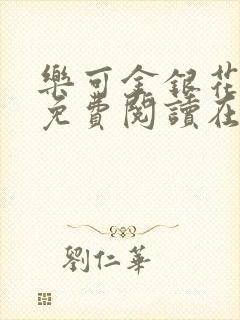 樂可金銀花
免費閱讀在
劉仁華